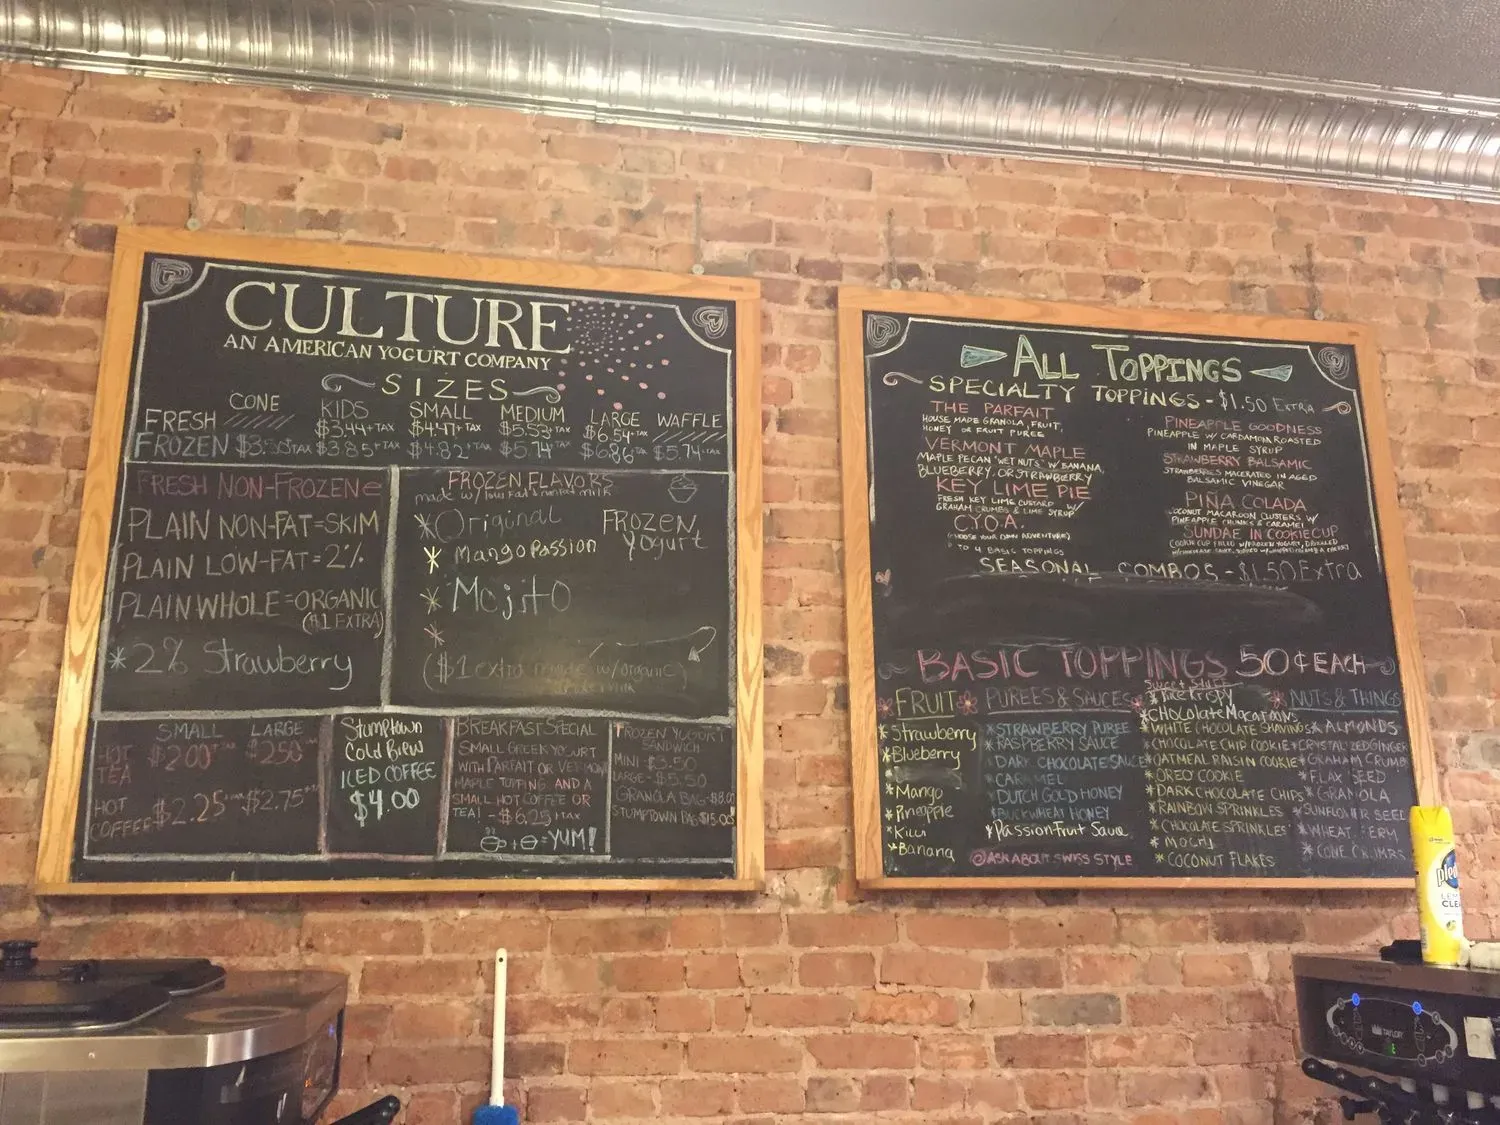 CULTURE
AN AMERICAN YOGURT COMPANY
SIZES
CONE KIDS SMALL MEDIUM LARGE WAFFLE
FRESH $3.44+TAX $4.47+TAX $5.53+TAX $6.54+TAX
FROZEN TAX $3.85+TAX $4.82+TAX $5.74+TAX $6.86+TAX $5.74+TAX
FRESH NON-FROZEN
PLAIN NON-FAT=SKIM
PLAIN LOW-FAT=2%
PLAIN WHOLE=ORGANIC
($1 EXTRA)
*2% Strawberry
FROZEN FLAVORS
made w/ low fat & nonfat milk
*Original
*Mango Passion
*Mojito
*
FROZEN
Yogurt
($1 extra made w/organic)
milk
SMALL LARGE
HOT TEA $2.00 $2.50
HOT COFFEE $2.25 $2.75
Stumptown
Cold Brew
ICED COFFEE
$4.00
BREAKFAST SPECIAL
SMALL GREEK YOGURT
WITH PARFAIT OR VERMONT
MAPLE TOPPING AND A
SMALL HOT COFFEE OR
TEA! -$6.25+TAX
+ =YUM!
FROZEN YOGURT
SANDWICH
MINI -$3.50
LARGE-$5.50
GRANOLA BAG-$8.00
STUMPTOWN BAG $15.00
ALL TOPPINGS
SPECIALTY TOPPINGS - $1.50 EXTRA
THE PARFAIT
HOUSE MADE GRANOLA, FRUIT,
HONEY OR FRUIT PUREE
VERMONT MAPLE
MAPLE PECAN "WET NUTS" W/ BANANA,
BLUEBERRY, OR STRAWBERRY
KEY LIME PIE
FRESH KEY LIME CUSTARD W/
GRAHAM CRUMBS & LIME SYRUP
C.Y.O.A.
(CHOOSE YOUR OWN ADVENTURE)
TO 4 BASIC TOPPINGS
PINEAPPLE GOODNESS
PINEAPPLE W/ CARDAMOM ROASTED
IN MAPLE SYRUP
STRAWBERRY BALSAMIC
STRAWBERRIES MACERATED IN AGED
BALSAMIC VINEGAR
PIÑA COLADA
COCONUT MACAROON CLUSTERS W/
PINEAPPLE CHUNKS & CARAMEL
SUNDAE IN COOKIECUP
COOKIE CUP FILLED W/FROZEN YOGURT, DRIZZLED
SEASONAL COMBOS - $1.50 Extra
BASIC TOPPINGS 50¢ EACH
FRUIT
*Strawberry
*Blueberry
*Mango
*Pineapple
*Kiwi
*Banana
PUREES & SAUCES
*STRAWBERRY PUREE
*RASPBERRY SAUCE
*DARK CHOCOLATE SAUCE
*CARAMEL
*DUTCH GOLD HONEY
*BUCKWHEAT HONEY
*Passion Fruit Sauce
@ASK ABOUT SWISS STYLE
*Rice Krispy
*CHOColate Macaroons
*WHITE CHOCOLATE SHAVINGS
*CHOCOLATE CHIP COOKIE
*OATMEAL RAISIN COOKIE
*OREO COOKIE
*DARK CHOCOLATE CHIPS
*RAINBOW SPRINKLES
*CHOCOLATE SPRINKLES
*MOCHI
*COCONUT FLAKES
NUTS & THINGS
*ALMONDS
*CRYSTALIZED GINGER
*GRAHAM CRUMB
*FLAX SEED
*GRANOLA
*SUNFLOWER SEED
*WHEAT GERM
*CONE CRUMBS
TAYLOR